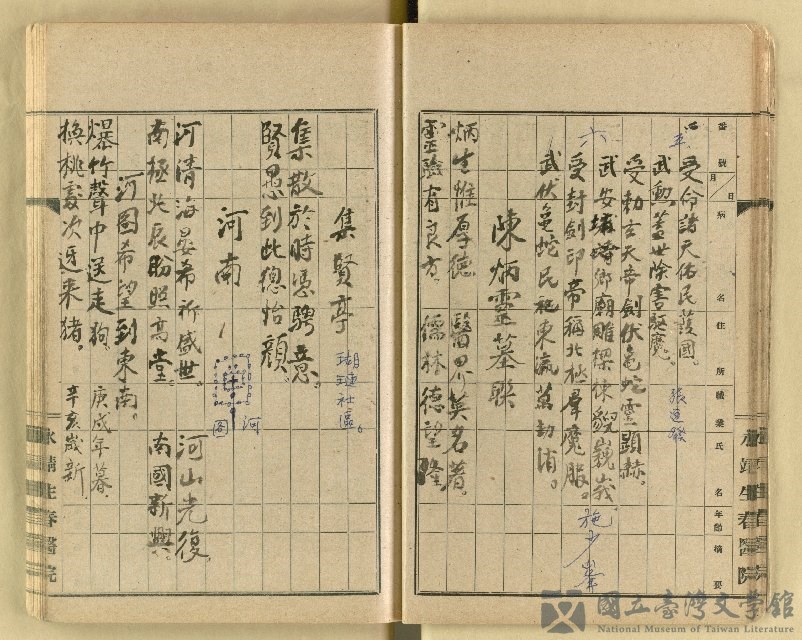 番號 月 日 病 名 住 所 職業 氏 名 年齡 摘要
五 受命諸天佑民護國。
武勳蓋世除害驅魔。 張達發
受勅玄天帝劍伏龜蛇靈顯赫。
六 武安埔崎鄉廟雕樑棟貌巍峩。
受封劍印帝稱北極羣魔服。
武伏龜蛇民祀東瀛萬劫消。 施少峯
陳炳靈墓聯
炳生惟厚德 醫界英名著。
靈驗有良方。 儒林德望隆
永靖生春醫院
集賢亭 瑚璉社區。
集散於時憑騁意。
賢愚到此總怡顏。
河南
河圖
河清海晏希祈盛世。 河山光復。
南極北辰盼照高堂。 南國新興。
河圖希望到東南。
爆竹聲中送走狗。 庚戌年暮。
換桃
次迓來豬。 辛亥歲新
永靖生春醫院
國立臺灣文學館
National Museum of Taiwan Literature